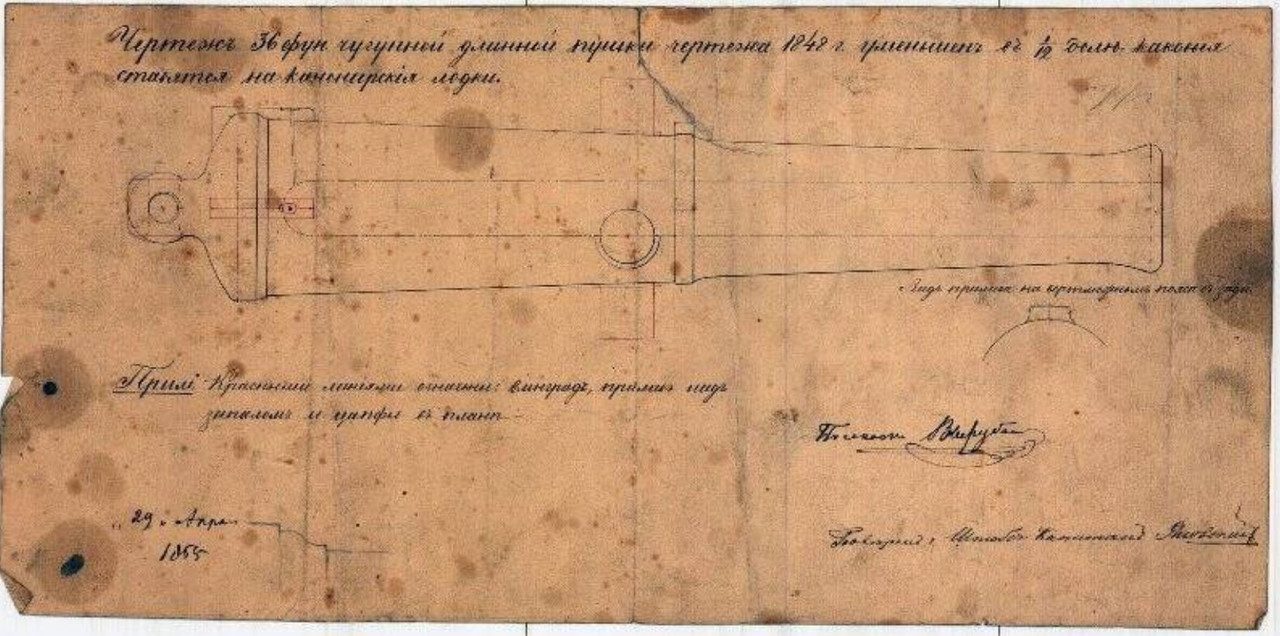 Чертежъ 36 фун чугунной длинной пушки чертежа 1848 г. уменьшенъ въ 1/12 долю каковыя
ставятся на канонирскія лодки.
Видъ прилива на вертлюжномъ поясѣ сзади.
Прим: Красными линіями означены: винградъ, приливъ подъ
запаломъ и цапфы въ планѣ.
29 Апре
1855
Штабсъ Капитанъ